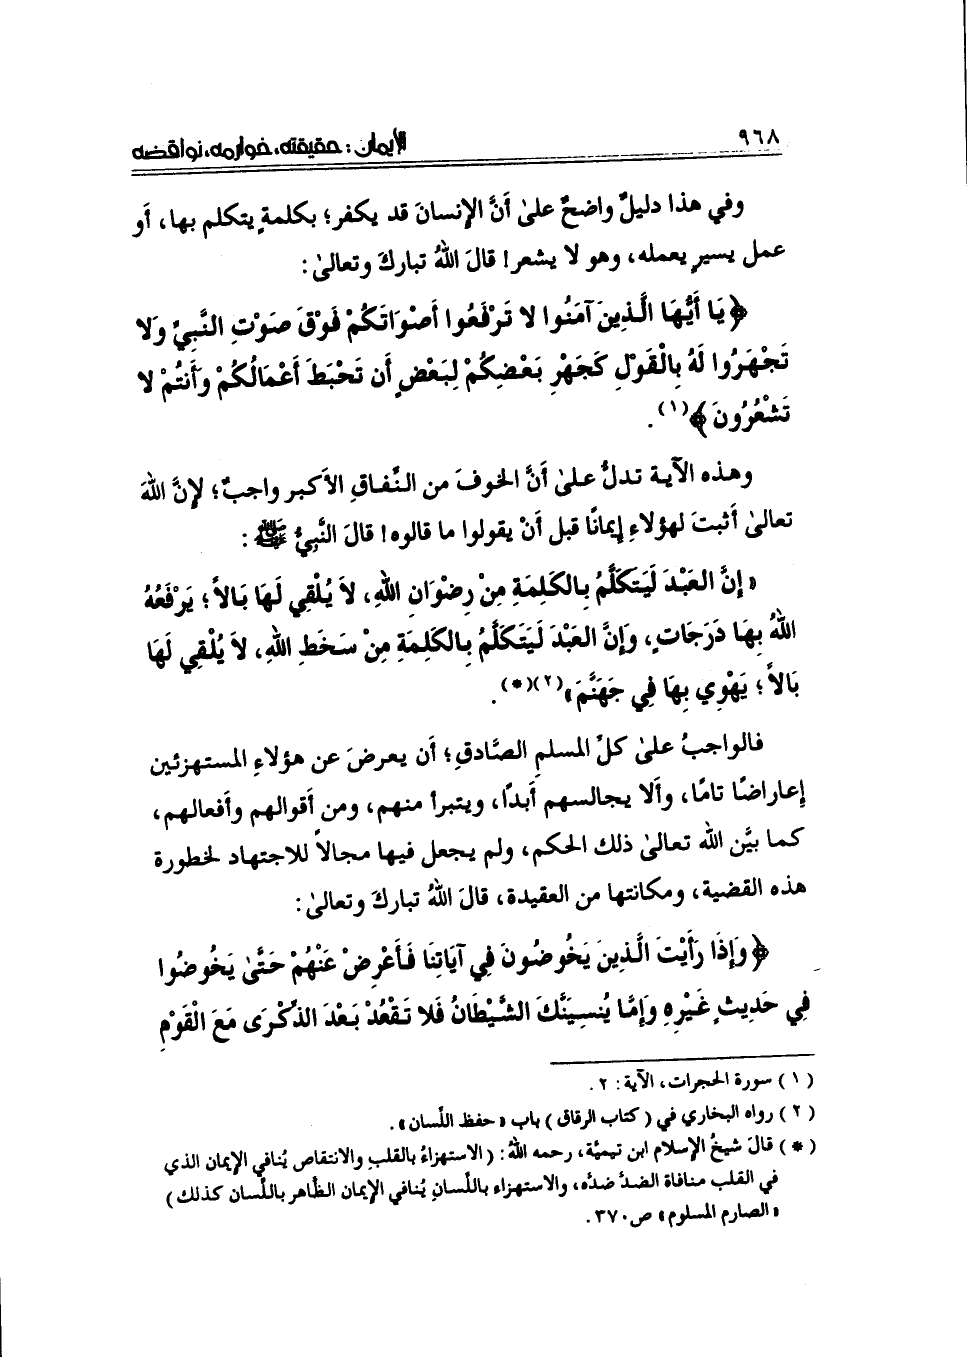 ٩٦٨
الإيمان: حقيقته، خوارمه، نواقضه
وفي هذا دليلٌ واضحٌ علىٰ أنَّ الإنسانَ قد يكفر؛ بكلمةٍ يتكلم بها، أو
عمل يسيرٍ يعمله، وهو لا يشعر! قالَ اللهُ تباركَ وتعالىٰ:
﴿يَا أَيُّهَا الَّذِينَ آمَنُوا لا تَرْفَعُوا أَصْوَاتَكُمْ فَوْقَ صَوْتِ النَّبِيِّ وَلا
تَجْهَرُوا لَهُ بِالْقَوْلِ كَجَهْرِ بَعْضِكُمْ لِبَعْضٍ أَن تَحْبَطَ أَعْمَالُكُمْ وَأَنتُمْ لا
تَشْعُرُونَ﴾(١).
وهذه الآية تدلُّ علىٰ أنَّ الخوفَ من النِّفاقِ الأكبرِ واجبٌ؛ لإنَّ اللهَ
تعالىٰ أثبتَ لهؤلاءِ إيمانًا قبل أنْ يقولوا ما قالوه! قالَ النَّبيُّ ﷺ:
«إنَّ العَبْدَ لَيَتَكَلَّمُ بِالكَلِمَةِ مِنْ رِضْوَانِ اللهِ، لاَ يُلْقِي لَهَا بَالاً؛ يَرْفَعُهُ
اللهُ بِهَا دَرَجَاتٍ، وَإنَّ العَبْدَ لَيَتَكَلَّمُ بِالكَلِمَةِ مِنْ سَخَطِ اللهِ، لاَ يُلْقِي لَهَا
بَالاً؛ يَهْوِي بِهَا فِي جَهَنَّمَ»(٢)(*).
فالواجبُ علىٰ كلِّ المسلمِ الصَّادقِ؛ أن يعرضَ عن هؤلاءِ المستهزئين
إعاراضًا تامًا، وألا يجالسهم أبدًا، ويتبرأ منهم، ومن أقوالهم وأفعالهم،
كما بيَّن الله تعالىٰ ذلك الحكم، ولم يجعل فيها مجالاً للاجتهاد لخطورة
هذه القضية، ومكانتها من العقيدة، قالَ اللهُ تباركَ وتعالىٰ:
﴿وَإِذَا رَأَيْتَ الَّذِينَ يَخُوضُونَ فِي آيَاتِنَا فَأَعْرِضْ عَنْهُمْ حَتَّىٰ يَخُوضُوا
فِي حَدِيثٍ غَيْرِهِ وَإِمَّا يُنسِيَنَّكَ الشَّيْطَانُ فَلا تَقْعُدْ بَعْدَ الذِّكْرَى مَعَ الْقَوْمِ
(١) سورة الحجرات، الآية: ٢.
(٢) رواه البخاري في (كتاب الرقاق) باب «حفظ اللِّسان».
(*) قالَ شيخُ الإسلام ابن تيميَّة، رحمه اللهُ: (الاستهزاءُ بالقلبِ والانتقاصِ يُنافي الإيمان الذي
في القلب منافاة الضدِّ ضدَّه، والاستهزاء باللِّسانِ يُنافي الإيمان الظَّاهر باللِّسان كذلك)
«الصارم المسلول» ص٣٧٠.